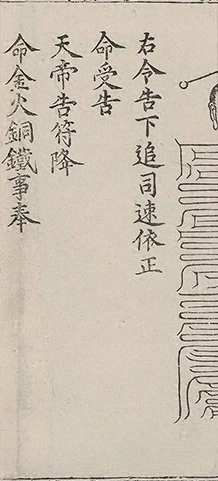 右令告下追司速依正
命受告
天帝告符降
命金火銅鐵事奉